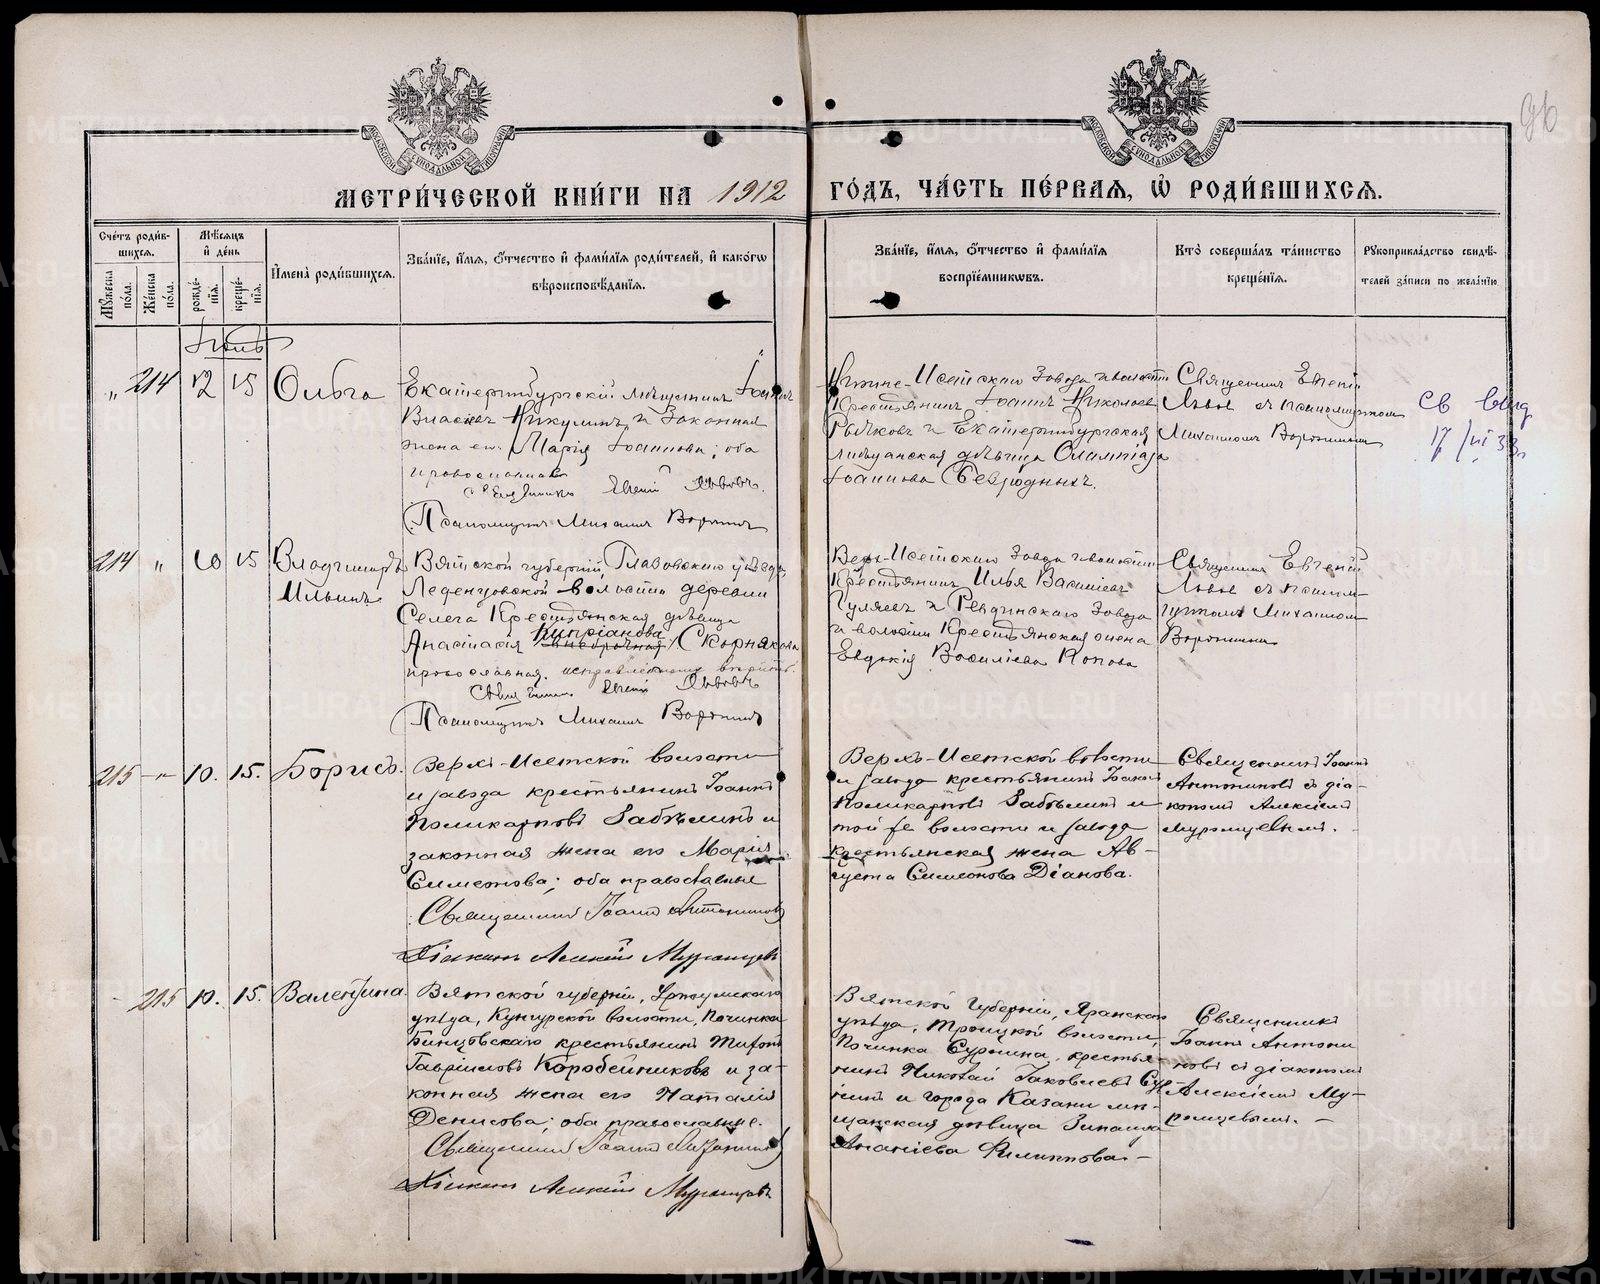 96
МЕТРИ́ЧЕСКОЙ КНИ́ГИ НА 1912 ГО́ДЪ, ЧА́СТЬ ПЕ́РВАЯ, Ѡ҆ РОДИ́ВШИХСЯ.
Сче́тъ роди́вшихся.
Му́жеска по́ла.
Же́нска по́ла.
Мѣ́сяцъ и҆ де́нь
рожде́нїя.
креще́нїя.
И҆мена̀ роди́вшихся.
Зва́нїе, и҆́мя, ѻ҆́тчество и҆ фами́лїя роди́телей, и҆ како́гѡ
вѣроисповѣ́данїя.
Зва́нїе, и҆́мя, ѻ҆́тчество и҆ фами́лїя
воспрїе́мникѡвъ.
Кто̀ соверша́лъ та́инство
креще́нїя.
Рꙋкоприкла́дство свидѣ́-
телей за́писи по жела́нїю.
Іюнь
„ 214 12 15 Ольга
Екатеринбургскій мѣщанинъ Іоаннъ
Власіевъ Никулинъ и законная
жена его Марія Іоаннова; оба
православные
Священникъ Евгеній Львовъ.
Псаломщикъ Михаилъ Воронинъ
Нижне-Исетскаго завода и волости
крестьянинъ Іоаннъ Николаевъ
и Екатеринбургская
мѣщанская дѣвица Олимпіада
Іоаннова Безродныхъ.
Священникъ Евгеній
Львовъ съ псаломщикомъ
Михаиломъ Воронинымъ
св выд
17/VI 33
214 „ 10 15 Владимиръ
Ильинъ
Вятской губерніи, Глазовскаго уѣзда,
Леденцовской волости деревни
Селега крестьянская дѣвица
Анастасія Кипріанова Скорнякова
православная. исправленному вѣрить.
Священникъ Евгеній Львовъ
Псаломщикъ Михаилъ Воронинъ
Верх-Исетскаго завода и волости
крестьянинъ Илья Василіевъ
Гуляевъ и Ревдинскаго завода
и волости крестьянская жена
Евдокія Василіева Попова
Священникъ Евгеній
Львовъ съ псалом-
щикомъ Михаиломъ
Воронинымъ
215 -„- 10. 15. Борисъ.
Верхъ-Исетской волости
и завода крестьянинъ Іоаннъ
Поликарповъ Забѣлинъ и
законная жена его Марія
Симеонова; оба православные
Священникъ Іоаннъ Антониновъ
Діаконъ Алексій Муромцевъ
Верхъ-Исетской волости
и завода крестьянинъ Іоаннъ
Поликарповъ Забѣлинъ и
той же волости и завода
крестьянская жена Ав-
густа Симеонова Діанова.
Священникъ Іоаннъ
Антониновъ съ діа-
кономъ Алексіемъ
Муромцевымъ.
- 215 10. 15. Валентина
Вятской губерніи, Уржумскаго
уѣзда, Кунгурской волости, починка
крестьянинъ Тифонъ
Гавріиловъ Коробейниковъ и за-
конная жена его Наталія
Денисова; оба православные.
Священникъ Іоаннъ Антониновъ
Діаконъ Алексій Муромцевъ
Вятской губерніи, Яранскаго
уѣзда, Троицкой волости,
починка крестья-
нинъ Николай Іаковлевъ
и города Казани мѣ-
щанская дѣвица Зинаида
Ананіева Филиппова.-
Священникъ
Іоаннъ Антони-
новъ съ діакономъ
Алексіемъ Му-
ромцевымъ. -